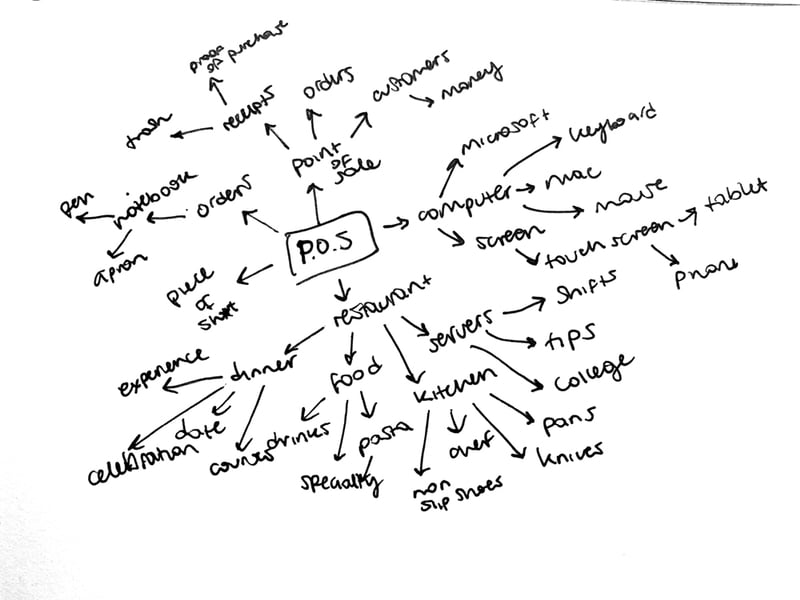 proof
of purchase
orders
customers
money
receipts
trash
point
of
sale
microsoft
keyboard
computer
mac
mouse
screen
touch screen
tablet
phone
pen
notebook
orders
apron
P.O.S
piece
of
restaurant
servers
shifts
tips
college
experience
dinner
food
kitchen
celebration
date
courses
drinks
pasta
specialty
non
slip shoes
chef
pans
knives